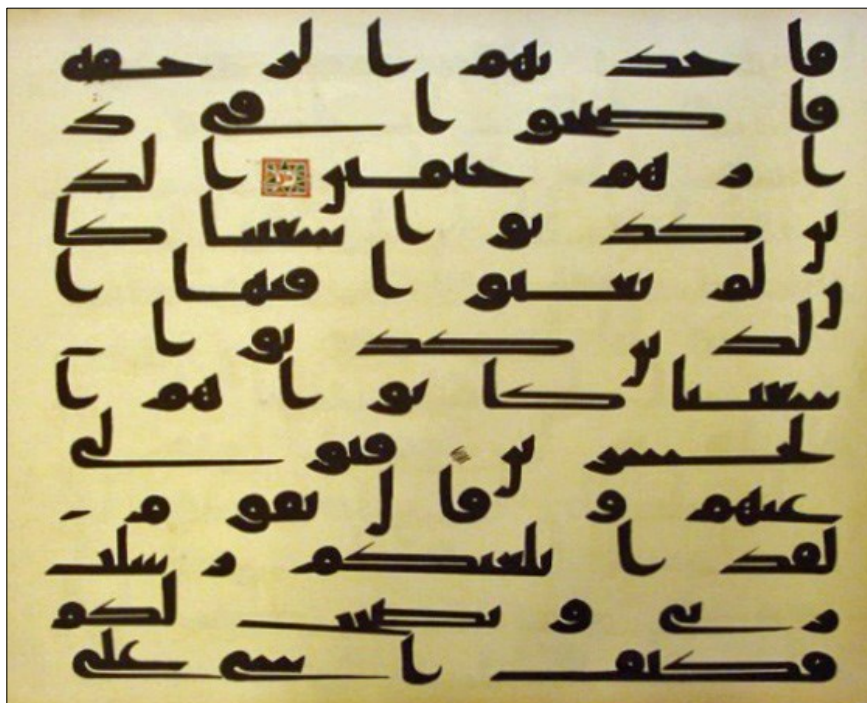 فاخذتهم الرجفة
فاصبحوا في د
ارهم جثمين الذ
ين كذبوا شعيبا كا
ن لم يغنوا فيها ا
لذين كذبوا
شعيبا كانوا هم ا
لخسرين فتولى
عنهم وقال يقوم
لقد ابلغتكم رسلت
ربي ونصحت لكم
فكيف اسى على